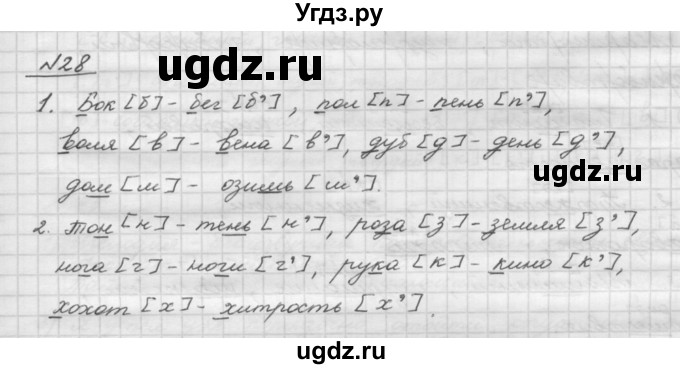 Угдз.ру
№28
ugdz.ru
1. Бок [б] - бег [б'], пол [п] - пень [п'],
воля [в] - вена [в'], дуб [д] - день [д'],
ugdz.ru
дом [м] - озимь [м'].
2. Тон [н] - тень [н'], роза [з] - земля [з'],
нога [г] - ноги [г'], рука [к] - кино [к'],
хохот [х] - хитрость [х'].
ugdz.ru
ugdz.ru